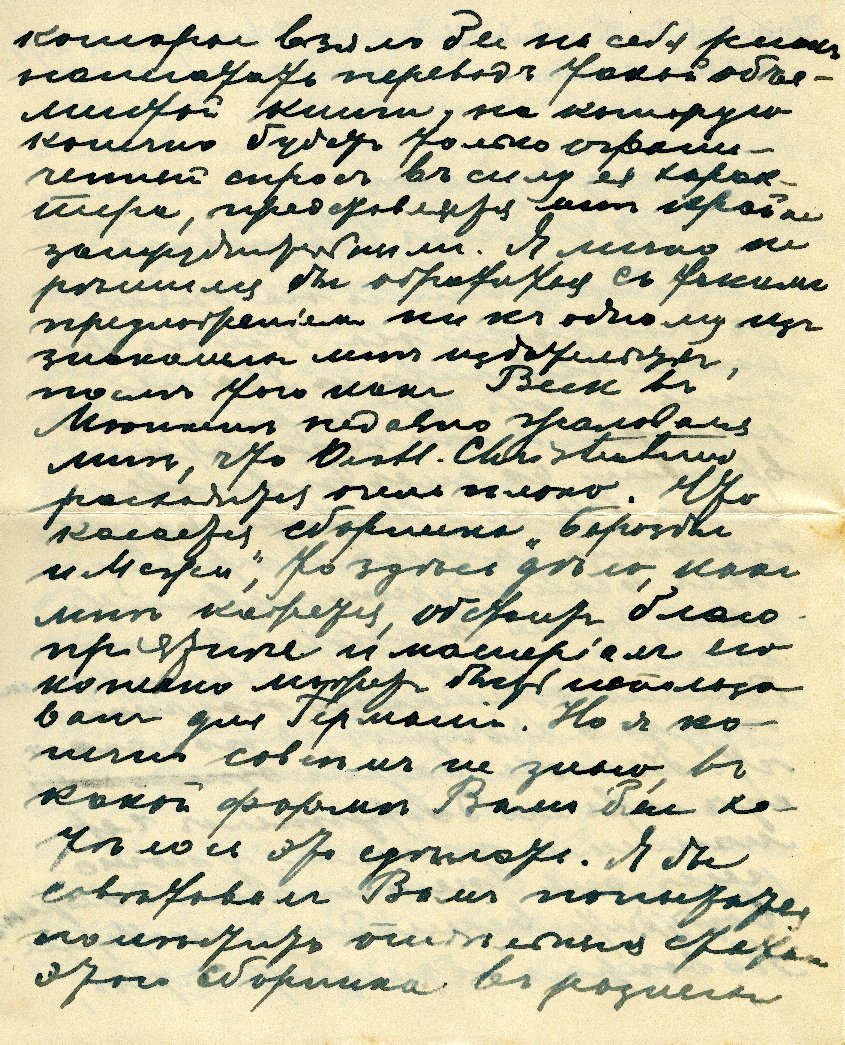 которое взяло бы на себя рискъ
напечатать переводъ такой объе-
мистой книги, на которую
конечно будетъ только ограни-
ченный спросъ въ силу ея харак-
тера, представляется мнѣ крайне
затруднительнымъ. Я лично не
рѣшился бы обратиться съ такими
предложеніемъ ни къ одному изъ
знакомыхъ мнѣ издательствъ,
послѣ того какъ Beck въ
Мюнхенѣ недавно жаловался
мнѣ, что Oestl. Christentum
расходится очень плохо. Что
касается сборника „Борозды
и Межи", то здѣсь дѣло, какъ
мнѣ кажется, обстоитъ благо-
пріятнѣе и матеріалъ его
можно быть использо
ванъ для Германіи. Но я ко-
нечно совсѣмъ не знаю, въ
какой формѣ Вамъ бы хо-
тѣлось это сдѣлать. Я бы
совѣтовалъ Вамъ попытаться
помѣстить отдѣльныя статьи
этого сборника въ разныхъ